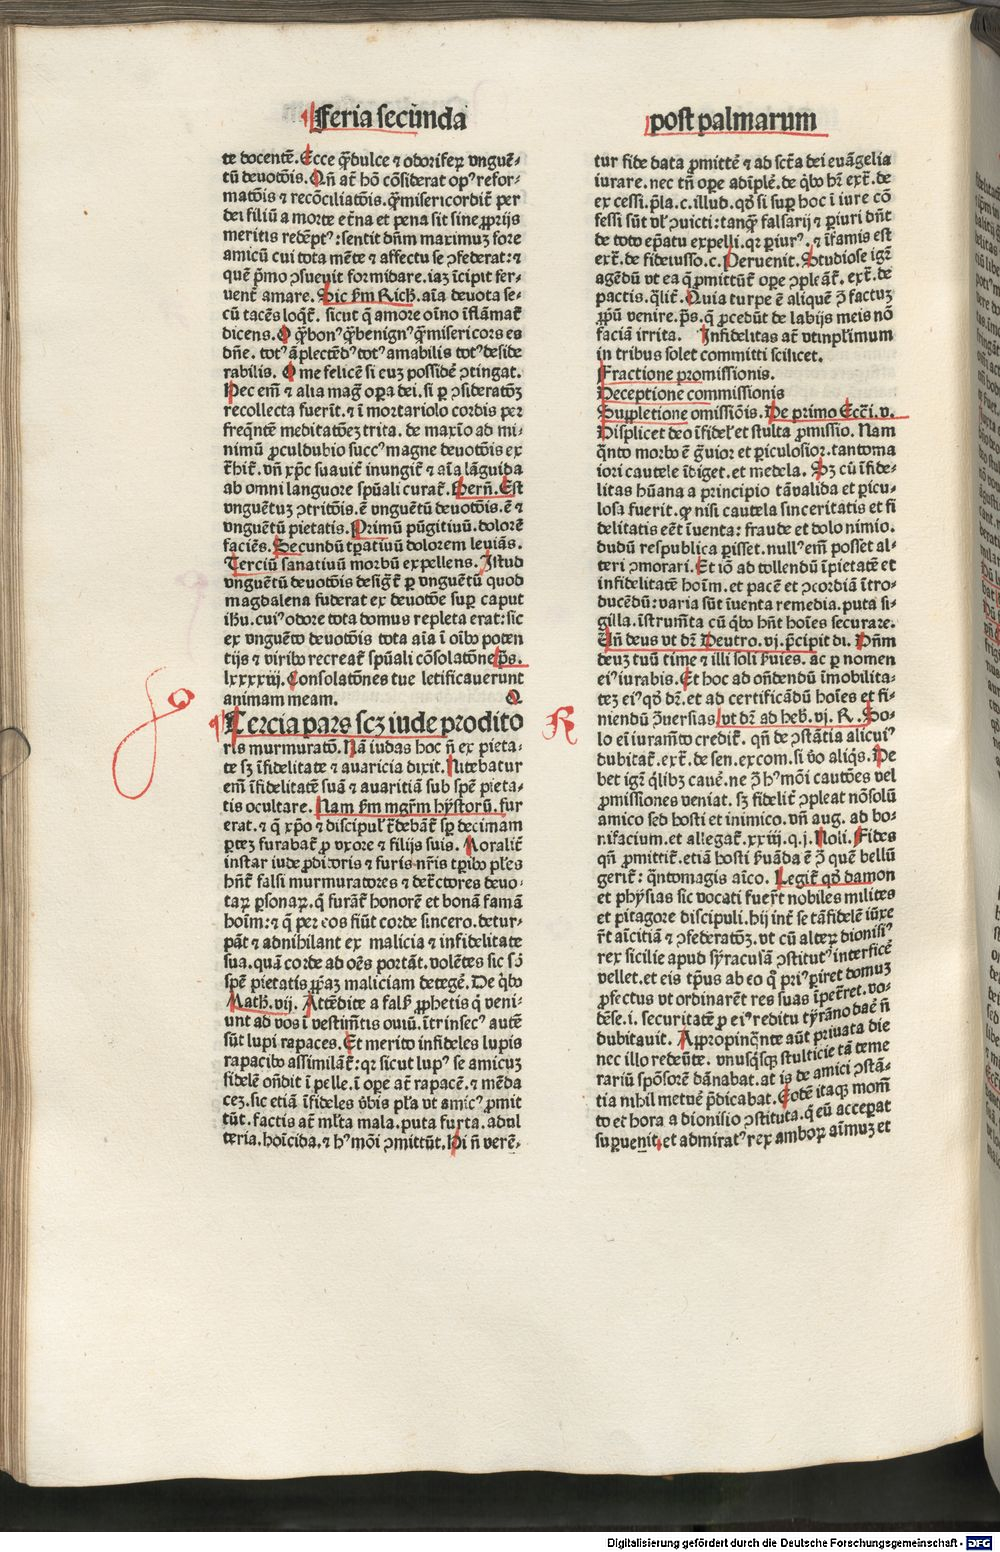 Feria secūnda
te docentē. Ecce q̄dulce ⁊ odoriferꝫ vnguē-
tū deuotōis. Qn̄ at̄ hō cōsiderat opꝰ refor-
matōis ⁊ recōciliatōis. q̄misericordit̄ per
dei filiū a morte et̄na et pena sit sine ꝓprijs
meritis redēptꝰ: sentit dn̄m maximuꝫ fore
amicū cui tota mēte ⁊ affectu se ꝯfederat: ⁊
quē pͥmo ꝯsueuit formidare. iaꝫ īcipit fer-
uent̄ amare. Sic fm Rich. aīa deuota se-
cū tacēs loqt̄. sicut q̄ amore oīno īflāmat̄
dicens. O q̄bonꝰ q̄benignꝰ q̄misericors es
dn̄e. totꝰ āplectēdꝰ totꝰ amabilis totꝰ deside
rabilis. O me felicē si euꝫ possidē ꝯtingat.
Hec em̄ ⁊ alia maḡ oꝑa dei. si ꝑ ꝯsideratōꝫ
recollecta fuerīt. ⁊ ī mortariolo cordis per
freqn̄tem meditatōeꝫ trita. de maxīo ad mi-
nimū ꝓculdubio succꝰ magne deuotōis ex
t̄hit̄. vn̄ xp̄c suauit̄ inungit̄ ⁊ aīa lāguida
ab omni languore spūali curat̄. Bern̄. Est
vnguētuꝫ ꝯtritōis. ē vnguētū deuotōis. ē ⁊
vnguētū pietatis. Primū pūgitiuū. dolorē
faciēs. Secundū tꝑatiuū dolorem leuiās.
Terciū sanatiuū morbū expellens. Istud
vnguētū deuotōis desigt̄ ꝑ vnguētū quod
magdalena fuderat ex deuotōe suꝑ caput
ihū. cuiꝰ odore tota domus repleta erat: sic
ex vnguēto deuotōis tota aīa ī oībꝰ poten
tijs ⁊ viribꝰ recreat̄ spūali cōsolatōne ps̄.
lxxxxiij. Consolatōnes tue letificauerunt
animam meam. Q
Tercia pars scꝫ iude prodito
ris murmuratō. Nā iudas hoc n̄ ex pieta-
te sꝫ īfidelitate ⁊ auaricia dixit. Nitebatur
em̄ īfidelitatē suā ⁊ auaritiā sub spē pieta-
tis ocultare. Nam fm mgr̄m hystorū. fur
erat. ⁊ q̄ xp̄o ⁊ discipul t̄debāt̄ sp̄ decimam
ꝑteꝫ furabat̄ ꝓ vxore ⁊ filijs suis. Moralit̄
instar iude ꝓditoris ⁊ furis nr̄is tꝑibꝰ pl̄es
hn̄t̄ falsi murmuratores ⁊ det̄ctores deuo-
taꝝ ꝑsonaꝝ. q̄ furāt̄ honorē et bonā famā
hoīm: ⁊ q̄ ꝑ eos fiūt corde sincero. detur-
pāt ⁊ adnihilant ex malicia ⁊ infidelitate
sua. quā corde ad oēs portāt. volētes sic sꝫ
spē pietatis ꝓpaꝫ maliciam detegē. De qͥbꝰ
Math. vij. Attēdite a falsꝭ ꝓphetis q̄ veni-
unt ad vos ī vestimētis ouiū. ītrinsecꝰ autē
sūt lupi rapaces. Et merito infideles lupis
rapacibꝰ assimilāt̄: qꝛ sicut lupꝰ se amicuꝫ
fidelē on̄dit ī pelle. ī oꝑe at̄ rapacē. ⁊ mēda
ceꝫ. sic etiā īfideles v̄bis pl̄a vt amicꝰ ꝓmit
tūt. factis at̄ ml̄ta mala. puta furta. adul
teria. hoīcida. ⁊ hꝰ mōi ꝯmittūt. Hi n̄ verē-
post palmarum
tur fide data ꝓmittē ⁊ ad sct̄a dei euāgelia
iurare. nec tn̄ oꝑe adīplē. de qͥbꝰ hr̄ ext̄. de
ex cessi. p̄la. c. illud. qꝫ si suꝑ hoc ī iure cō
fessi sūt vl ꝯuicti: tanq̄ falsarij ⁊ ꝑiuri dn̄t
de toto ep̄atu expelli. qꝛ ꝑiurꝰ. ⁊ īfamis est
ext̄. de fideiusso. c. Peruenit. Studiose igr̄
agēdū vt ea q̄ ꝓmittūt̄ oꝑe ꝯpleāt̄. ext̄. de
pactis. qlit̄. Quia turpe ē aliquē ꝯ̄ factuꝫ
ꝓpͥū venire. ps̄. q̄ ꝓcedūt de labijs meis nō
faciā irrita. Infidelitas at̄ vtinpl̄imum
in tribus solet committi scilicet.
Fractione promissionis.
Deceptione commissionis
Suppletione omissiōis. De primo Ecc̄i. v.
Displicet deo īfidel et stulta ꝓmissio. Nam
qn̄to morbꝰ ē ḡuior et ꝑiculosior. tantoma
iori cautele īdiget. et medela. Sꝫ cū īfide-
litas hūana a principio tāvalida et ꝑicu-
losa fuerit. ꝙ nisi cautela sinceritatis et fi
delitatis eēt īuenta: fraude et dolo nimio.
dudū respublica ꝑisset. nullꝰ em̄ posset al-
teri ꝯmorari. Et iō ad tollendū īpietatē et
infidelitatē hoīm. et pacē et ꝯcordiā ītro-
ducēdū: varia sūt īuenta remedia. puta si-
gilla. īstrum̄ta cū qͥbꝰ hn̄t hoīes securare.
Vn̄ deus vt dr̄ Deutro. vj. p̄cipit di. Dn̄m
deuꝫ tuū time ⁊ illi soli ẜuies. ac ꝑ nomen
eiꝰ iurabis. Et hoc ad on̄dendū īmobilita-
teꝫ eiꝰ qꝫ dr̄. et ad certificādū hoīes et fi-
niendū ꝯ̄uersias. vt dr̄ ad heb. vj. R. So-
lo ei iuramēto credit̄. qn̄ de ꝯstātia alicuiꝰ
dubitat̄. ext̄. de sen. excom. si vͦo aliqͣs. De
bet igr̄ qͥlibꝫ cauē. ne ꝯ̄ hꝰmōi cautōes vel
ꝓmissiones veniat. sꝫ fidelit̄ ꝯpleat nōsolū
amico sed hosti et inimico. vn̄ aug. ad bo-
nifacium. et allegat̄. xxiij. q. j. Noli. Fides
qn̄ ꝓmittit̄. etiā hosti ẜuāda ē ꝯ̄ quē bellū
gerit̄: qn̄tomagis aīco. Legit̄ qꝫ damon
et physias sic vocati fuer̄t nobiles milites
et pitagore discipuli. hij int̄ se tāfidelē iūxe
r̄t aīcitiā ⁊ ꝯfederatōꝫ. vt cū alteꝝ dionisiꝰ
rex sicilie apud syracusā ꝯstitutꝰ interficē
vellet. et eis tp̄us ab eo qͦ priꝰ ꝑiret domuꝫ
ꝓfectus vt ordinarēt res suas īpet̄ret. vo-
dēse. i. securitatē ꝓ eiꝰ reditu tyrāno daē n̄
dubitauit. Appropinqn̄te aūt priuata die
nec illo redeūte. vnusqͥsqꝫ stulticie tā teme
rariū spōsorē dānabat. at is de amici ꝯstā-
tia nihil metuē p̄dicabat. Eodē itaqꝫ mom̄
to et hora a dionisio ꝯstituta. q̄ eū acceꝑat
suꝑuenit. et admiratꝰ rex amboꝝ aīmuꝫ et
R
Digitalisierung gefördert durch die Deutsche Forschungsgemeinschaft - DFG